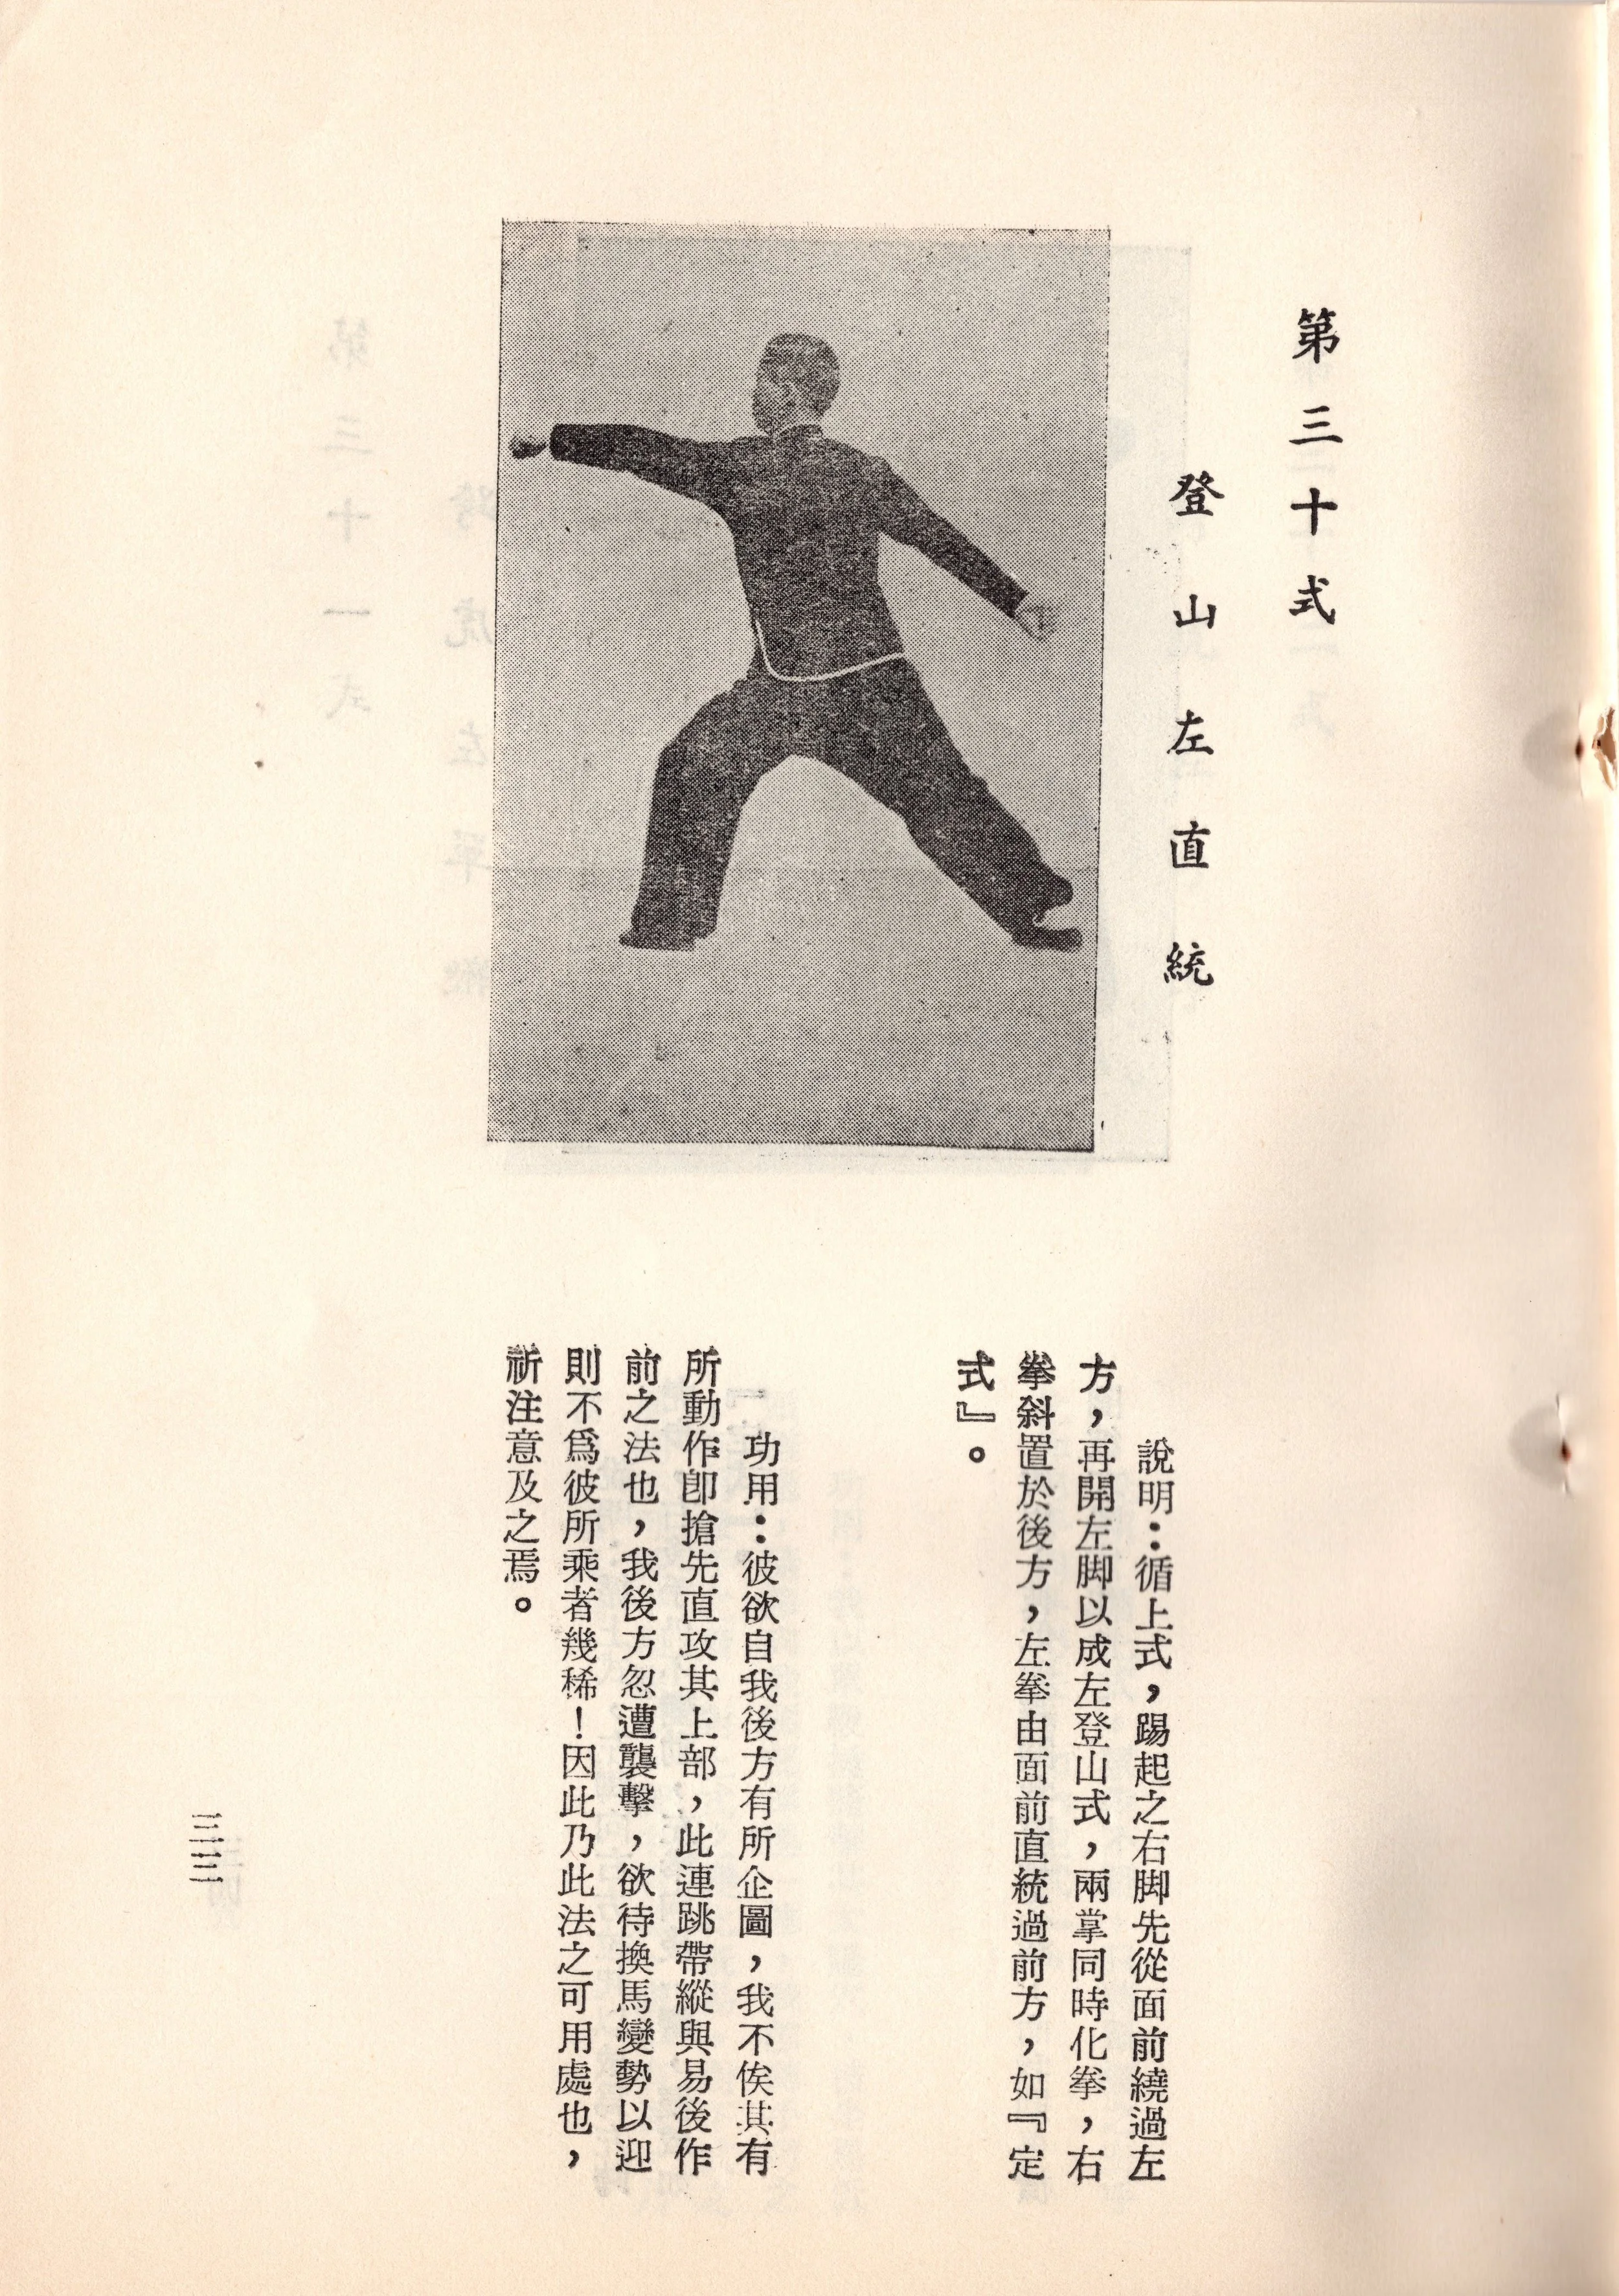 第三十式
登山左直統
說明：循上式，踢起之右脚先從面前繞過左
方，再開左脚以成左登山式，兩掌同時化拳，右
拳斜置於後方，左拳由面前直統過前方，如『定
式』。
功用：彼欲自我後方有所企圖，我不俟其有
所動作卽搶先直攻其上部，此連跳帶縱與易後作
前之法也，我後方忽遭襲擊，欲待換馬變勢以迎
則不爲彼所乘者幾稀！因此乃此法之可用處也，
祈注意及之焉。
三三